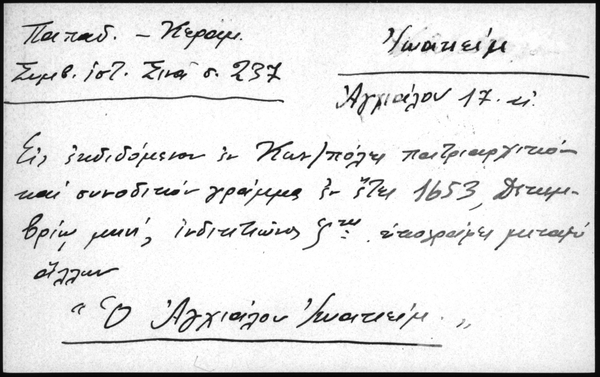 Παπαδ. – Κεραμ.
Συμβ. ἱστ. Σινᾶ σ. 237
Ἰωακείμ
Ἀγχιάλου 17. αἰ.
Εἰς ἐκδιδόμενον ἐν Κων/πόλει πατριαρχικὸν
καὶ συνοδικὸν γράμμα ἐν ἔτει 1653, Δεκεμ-
βρίῳ μηνί, ἰνδικτιῶνος ζης ὑπογράφει μεταξὺ
ἄλλων
"Ὁ Ἀγχιάλου Ἰωακείμ."